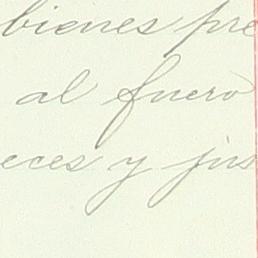 bienes pre
al fuero
eces y jus